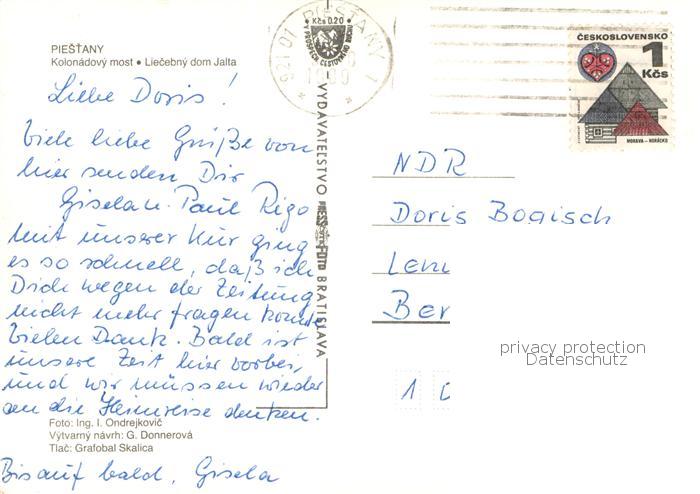 PIEŠŤANY
Kolonádový most • Liečebný dom Jalta
Liebe Doris!
Viele liebe Grüße von
hier senden Dir
Gisela u. Paul Rigo
Mit unserer Kur ging
es so schnell, daß ich
Dich wegen der Zeitung
nicht mehr fragen konnte
Vielen Dank. Bald ist
unsere Zeit hier vorbei,
und wir müssen wieder
an die Heimreise denken.
Foto: Ing. I. Ondrejkovič
Výtvarný návrh: G. Donnerová
Tlač: Grafobal Skalica
Bis auf bald, Gisela
VYDAVATEĽSTVO PRESSFOTO BRATISLAVA
921 01 PIEŠŤANY 1
Kčs 0.20
ČESKOSLOVENSKO
1
Kčs
MORAVA – HORÁCKO
NDR
Doris Bogisch
Len
Ber
1
privacy protection
Datenschutz